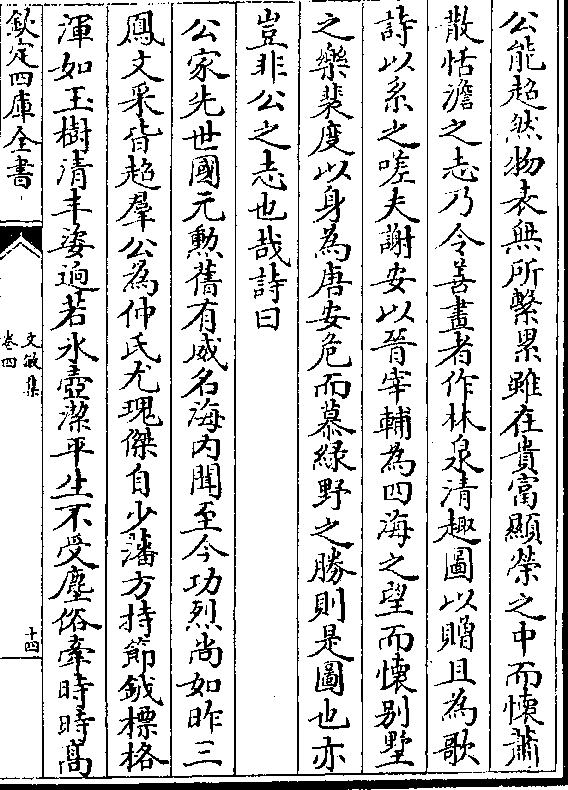 公能超然物表無所繫累雖在貴富顯榮之中而懷蕭
散恬澹之志乃令善畫者作林泉清趣圖以贈且為歌
詩以系之嗟夫謝安以晉宰輔為四海之望而懷别墅
之樂裴度以身為唐安危而慕緑野之勝則是圖也亦
豈非公之志也哉詩曰
公家先世國元勲舊有威名海内聞至今功烈尚如昨三
鳳文采皆超羣公為仲氏尤瑰傑自少藩方持節鉞標格
渾如玉樹清丰姿逈若氷壺潔平生不受塵俗牽時時髙
欽定四庫全書
文敏集
卷四
十四